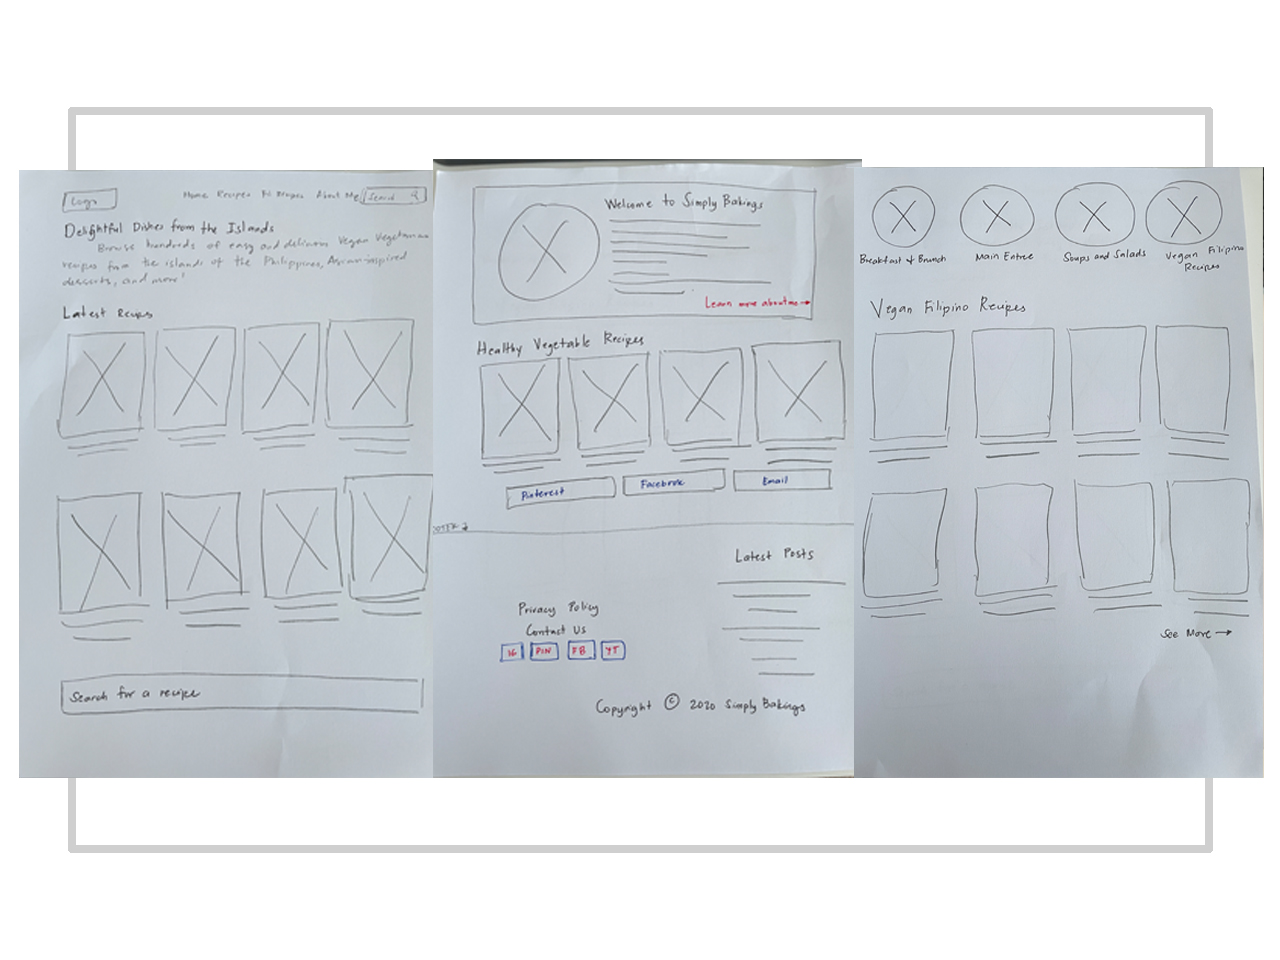 Logo
Home Recipes About Me Search
Delightful Dishes from the Islands
Browse hundreds of easy and delicious Vegan Vegetarian
recipes from the islands of the Philippines, Asian-inspired
desserts, and more!
Latest Recipes
Search for a recipe
Welcome to Simply Bakings
Learn more about me →
Healthy Vegetable Recipes
Pinterest
Facebook
Email
Latest Posts
Privacy Policy
Contact Us
IG PIN FB YT
Copyright © 2020 Simply Bakings
Breakfast & Brunch
Main Entree
Soups and Salads
Vegan Filipino
Recipes
Vegan Filipino Recipes
See More →